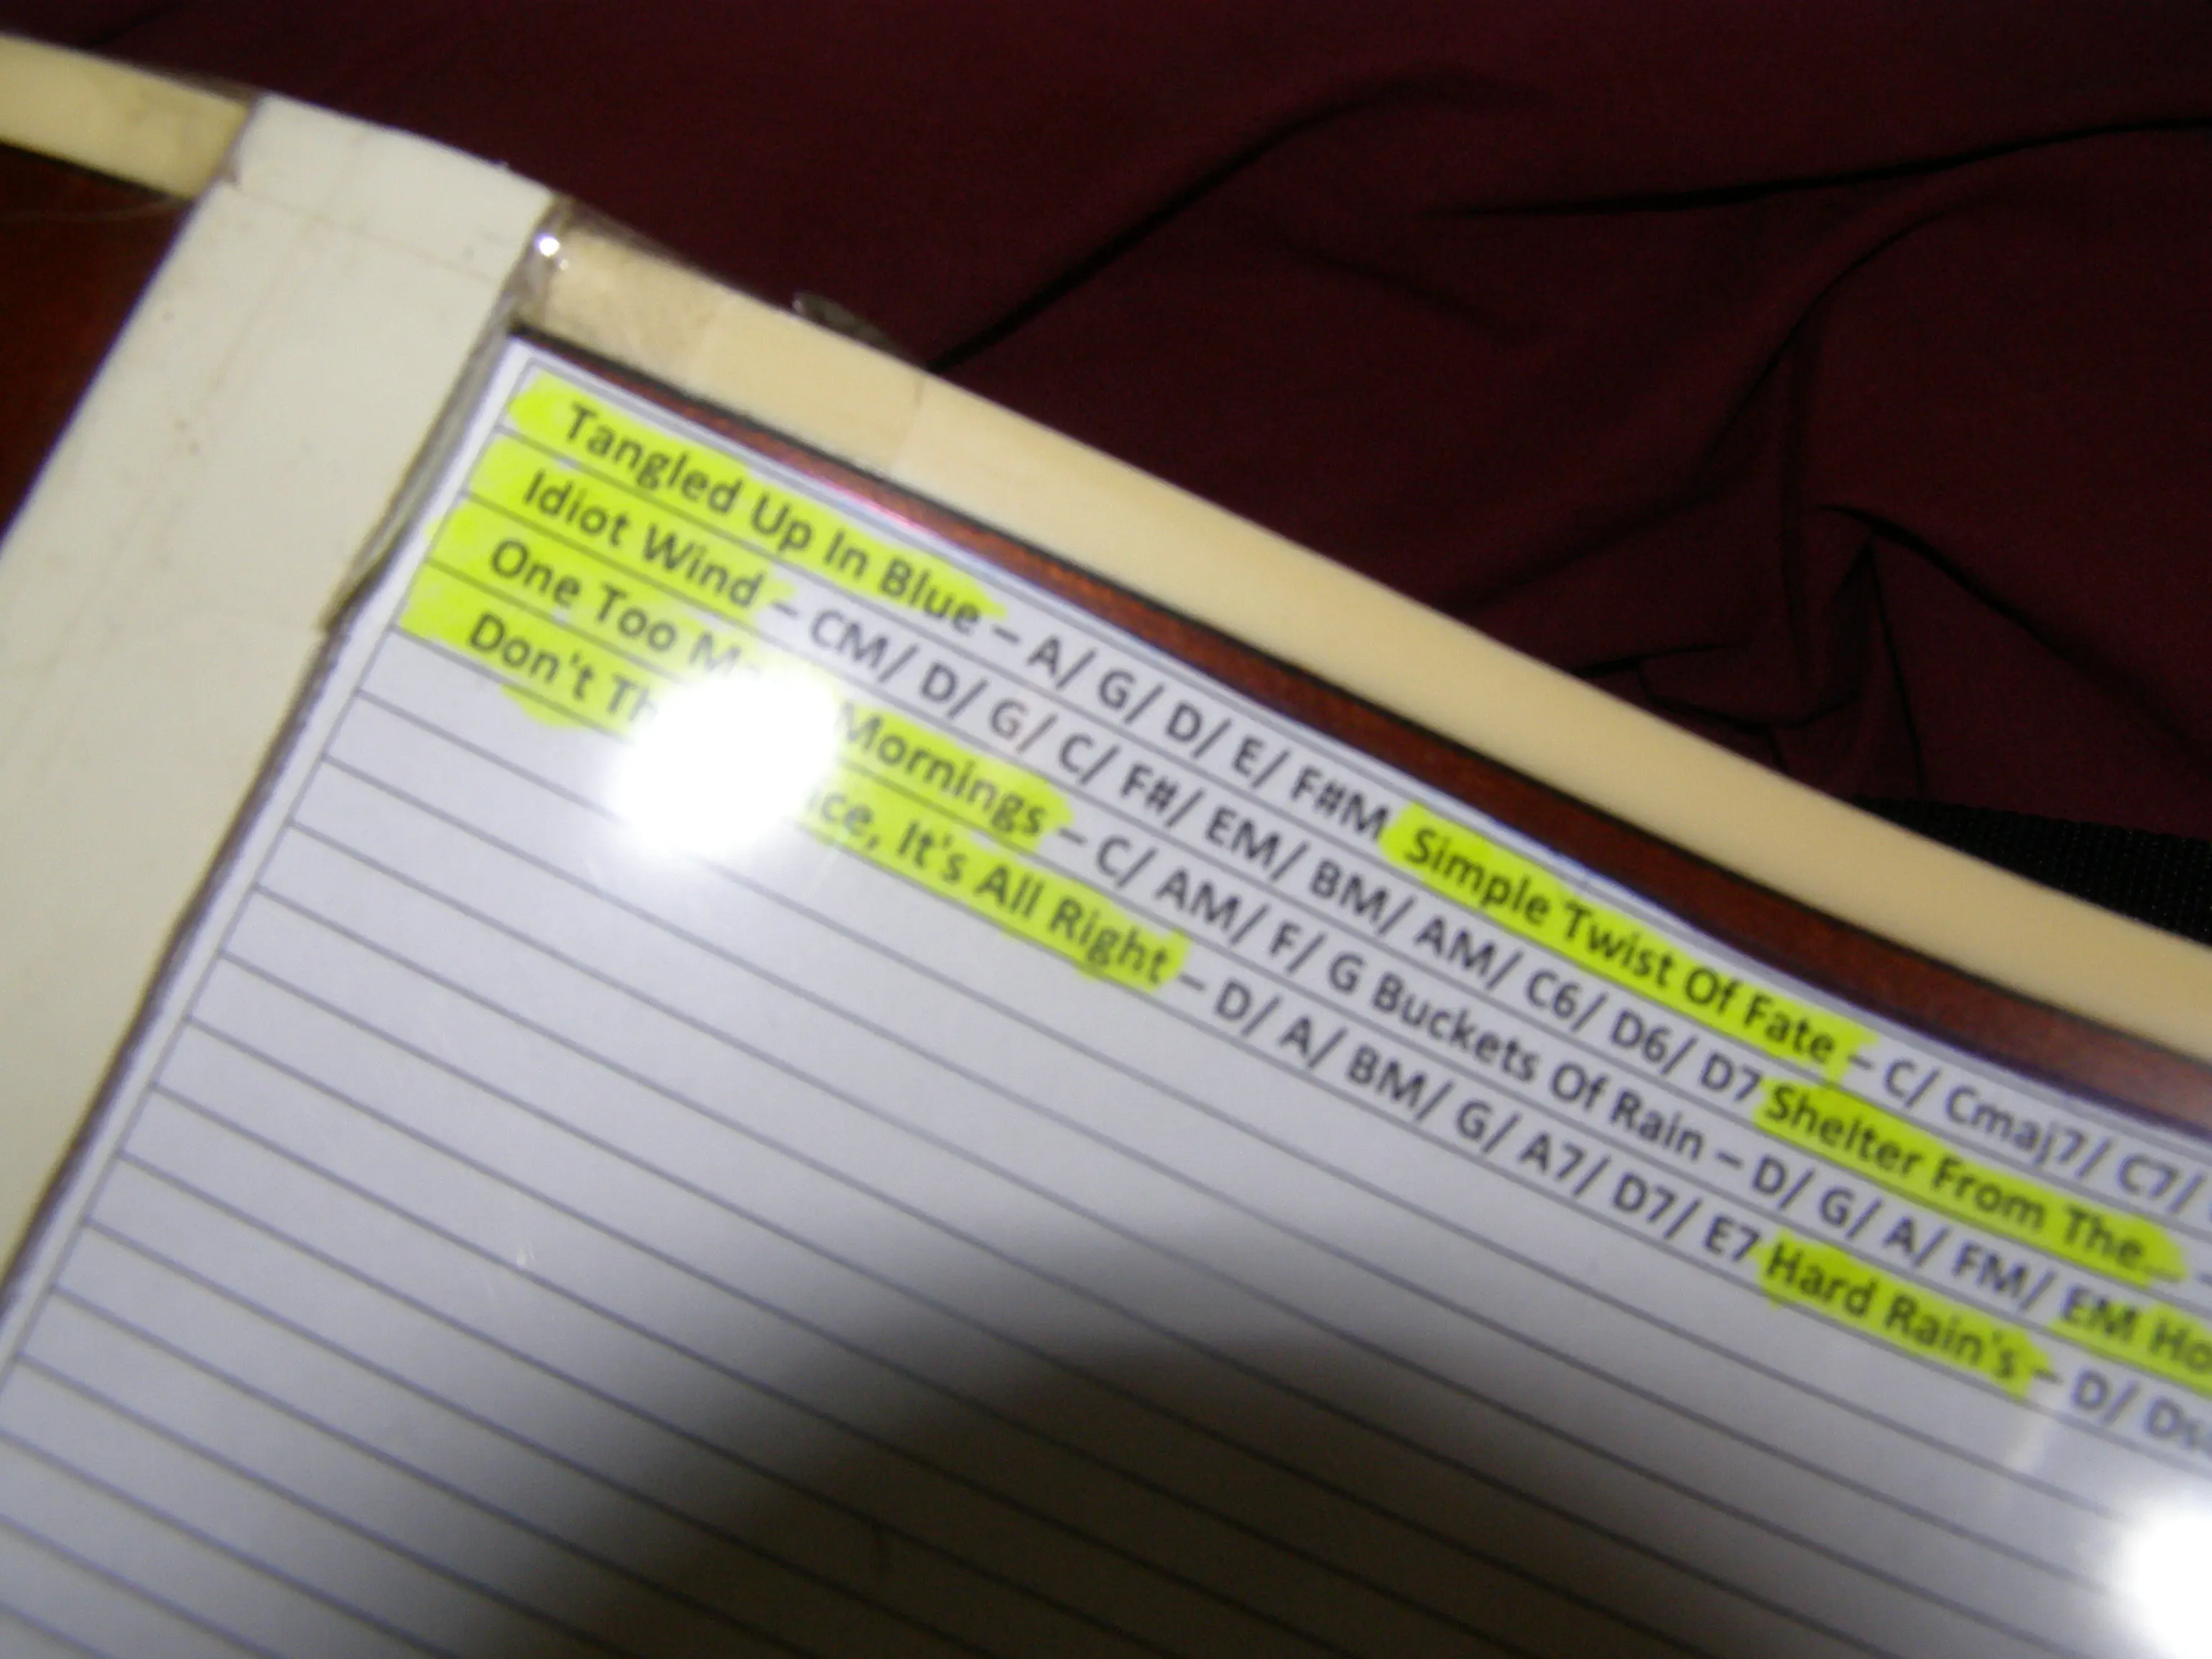 Tangled Up In Blue – A/ G/ D/ E/ F#M Simple Twist Of Fate – C/ Cmaj7/ C7/
Idiot Wind – CM/ D/ G/ C/ F#/ EM/ BM/ AM/ C6/ D6/ D7 Shelter From The...
One Too Mornings – C/ AM/ F/ G Buckets Of Rain – D/ G/ A/ FM/ EM
Don't It's All Right – D/ A/ BM/ G/ A7/ D7/ E7 Hard Rain's – D/